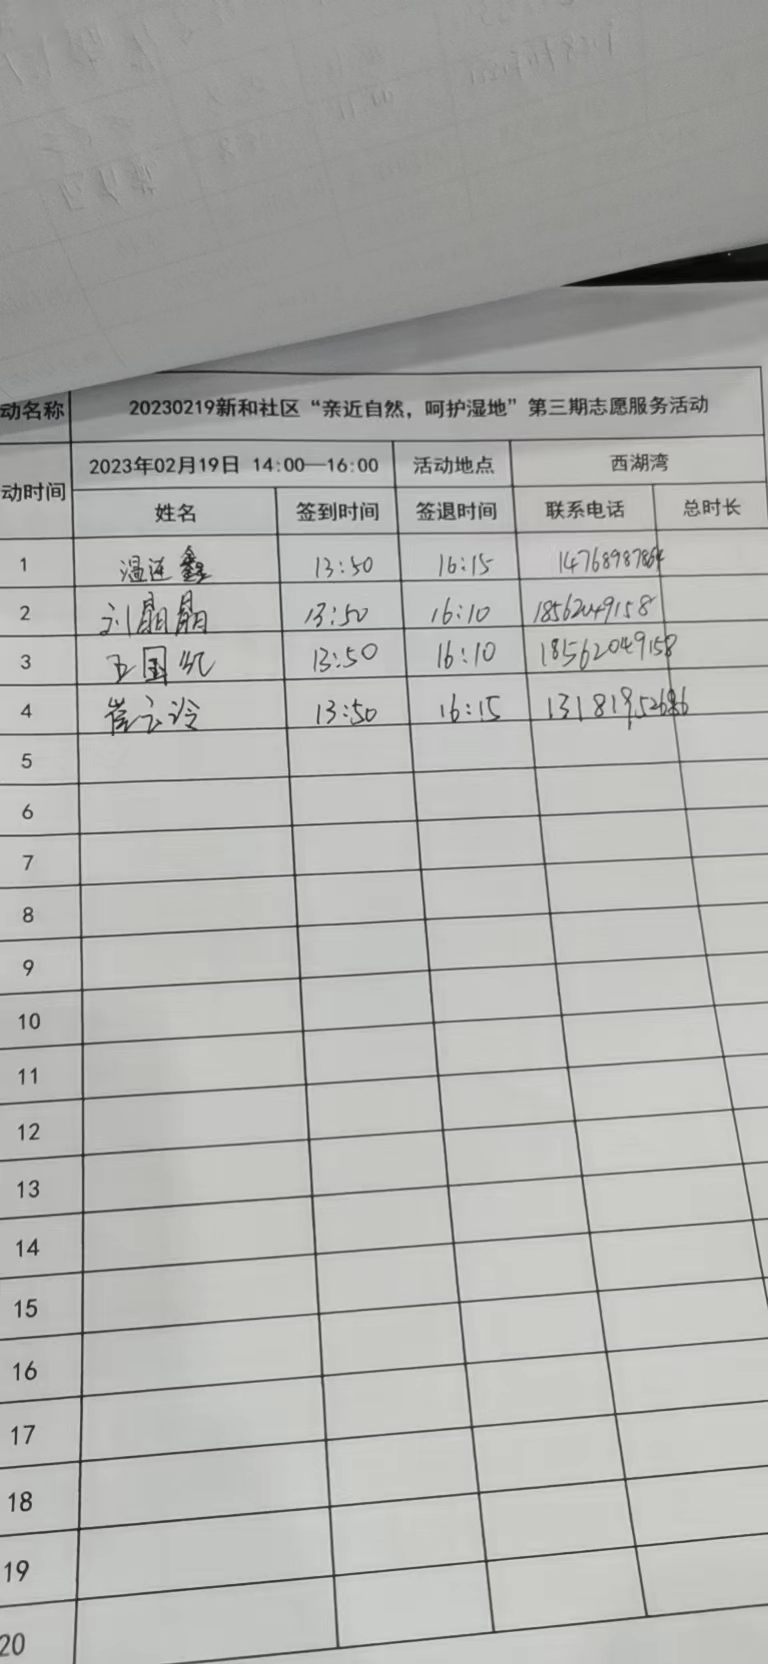 动名称 20230219新和社区“亲近自然，呵护湿地”第三期志愿服务活动
动时间 2023年02月19日 14:00—16:00 活动地点 西湖湾
姓名 签到时间 签退时间 联系电话 总时长
1 温连鑫 13:50 16:15 14768987864
2 刘晶晶 13:50 16:10 18562049158
3 王国 13:50 16:10 18562049158
4 崔 13:50 16:15 13181952686
5
6
7
8
9
10
11
12
13
14
15
16
17
18
19
20